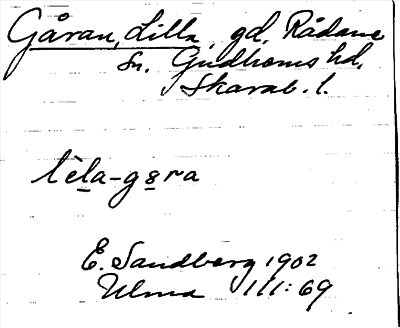 Gåran, Lilla, gd, Rådane
sn. Gudhems hd,
Skarab. l.
lìla-gɜra
E. Sandberg 1902
Ulma 111:69